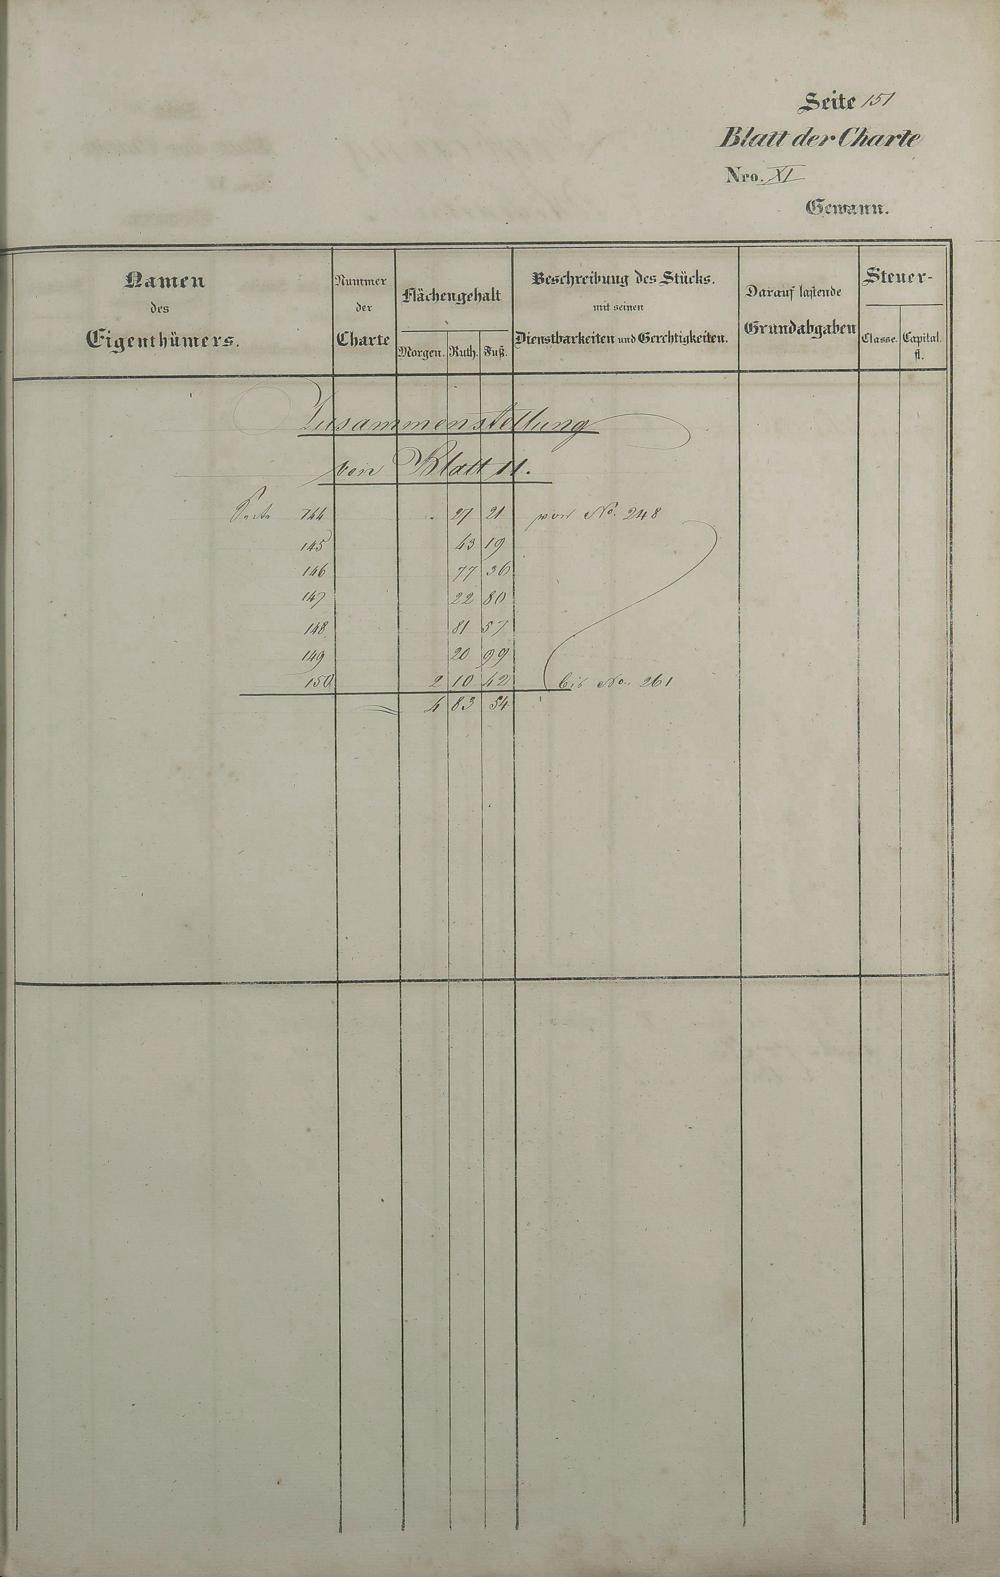 Seite 151
Blatt der Charte
Nro. XI
Gewann.
Namen des Eigenthümers.
Nummer der Charte
Flächengehalt
Morgen. Ruth. Fuß.
Beschreibung des Stücks. mit seinen Dienstbarkeiten und Gerechtigkeiten.
Darauf lastende Grundabgaben
Steuer-
Classe. Capital. fl.
Zusammenstellung
von Blatt 11.
Seite 144 . 27 21 von No. 248
145 43 19
146 77 36
147 22 80
148 81 57
149 20 99
150 2 10 42 bis No. 261
4 83 54